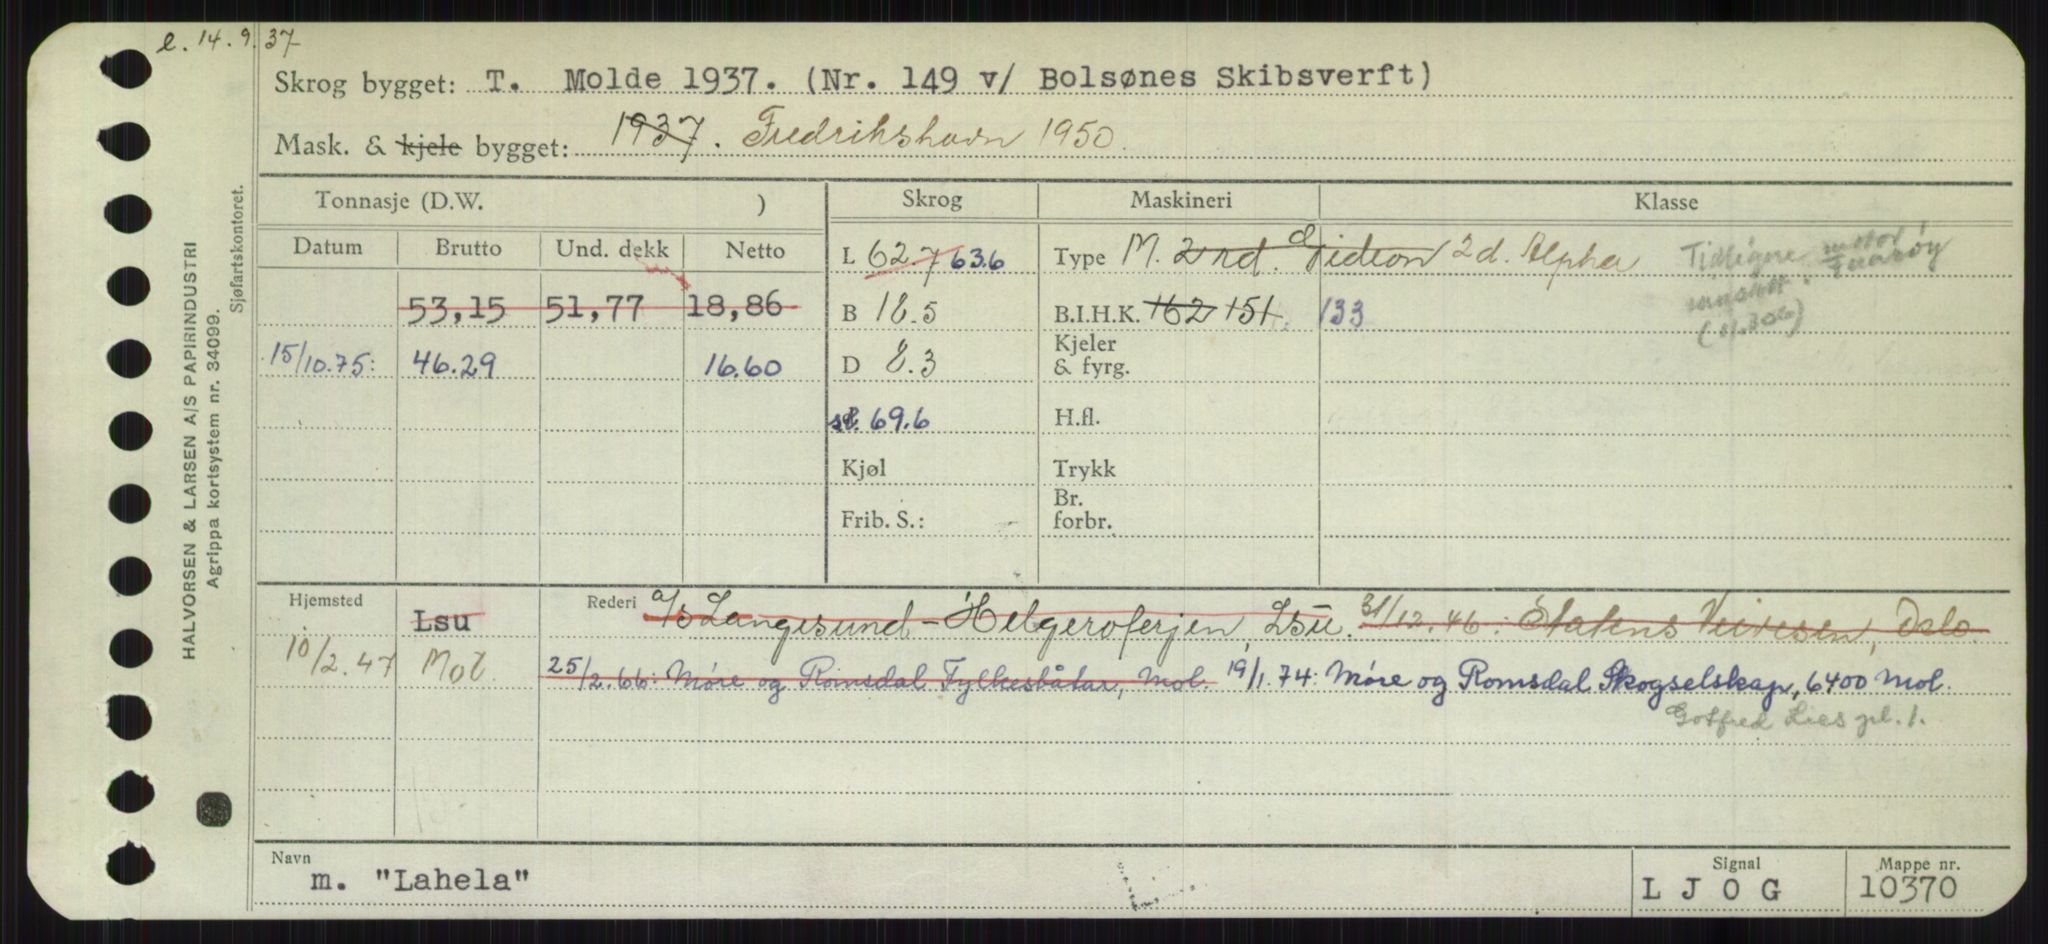 e. 14.9.37
Skrog bygget: T. Molde 1937. (Nr. 149 v/ Bolsønes Skibsverft)
Mask. & kjele bygget: 1937. Fredrikshavn 1950.
HALVORSEN & LARSEN A/S PAPIRINDUSTRI
Agrippa kortsystem nr. 34099.
Sjøfartskontoret.
Tonnasje (D.W. ) Skrog Maskineri Klasse
Datum Brutto Und. dekk Netto L 62.7 63.6 Type M. 2 rd. Gideon 2 d. Alpha Tidligere motor
53,15 51,77 18,86 B 18.5 B.I.H.K. 162 151. 133
15/10.75: 46.29 16.60 D 8.3 Kjeler & fyrg.
st. 69.6 H.fl.
Kjøl Trykk
Frib. S.: Br. forbr.
Hjemsted Lsu Rederi a/s Langesund-Helgeroferjen, Lsu. 31/12.46: Statens Veivesen, Oslo.
10/2.47 Mol. 25/2.66: Møre og Romsdal Fylkesbåtar, Mol. 19/1.74: Møre og Romsdal Skogselskap, 6400 Mol.
Gotfred Lies pl. 1.
Navn Signal Mappe nr.
m. "Lahela" L J O G 10370